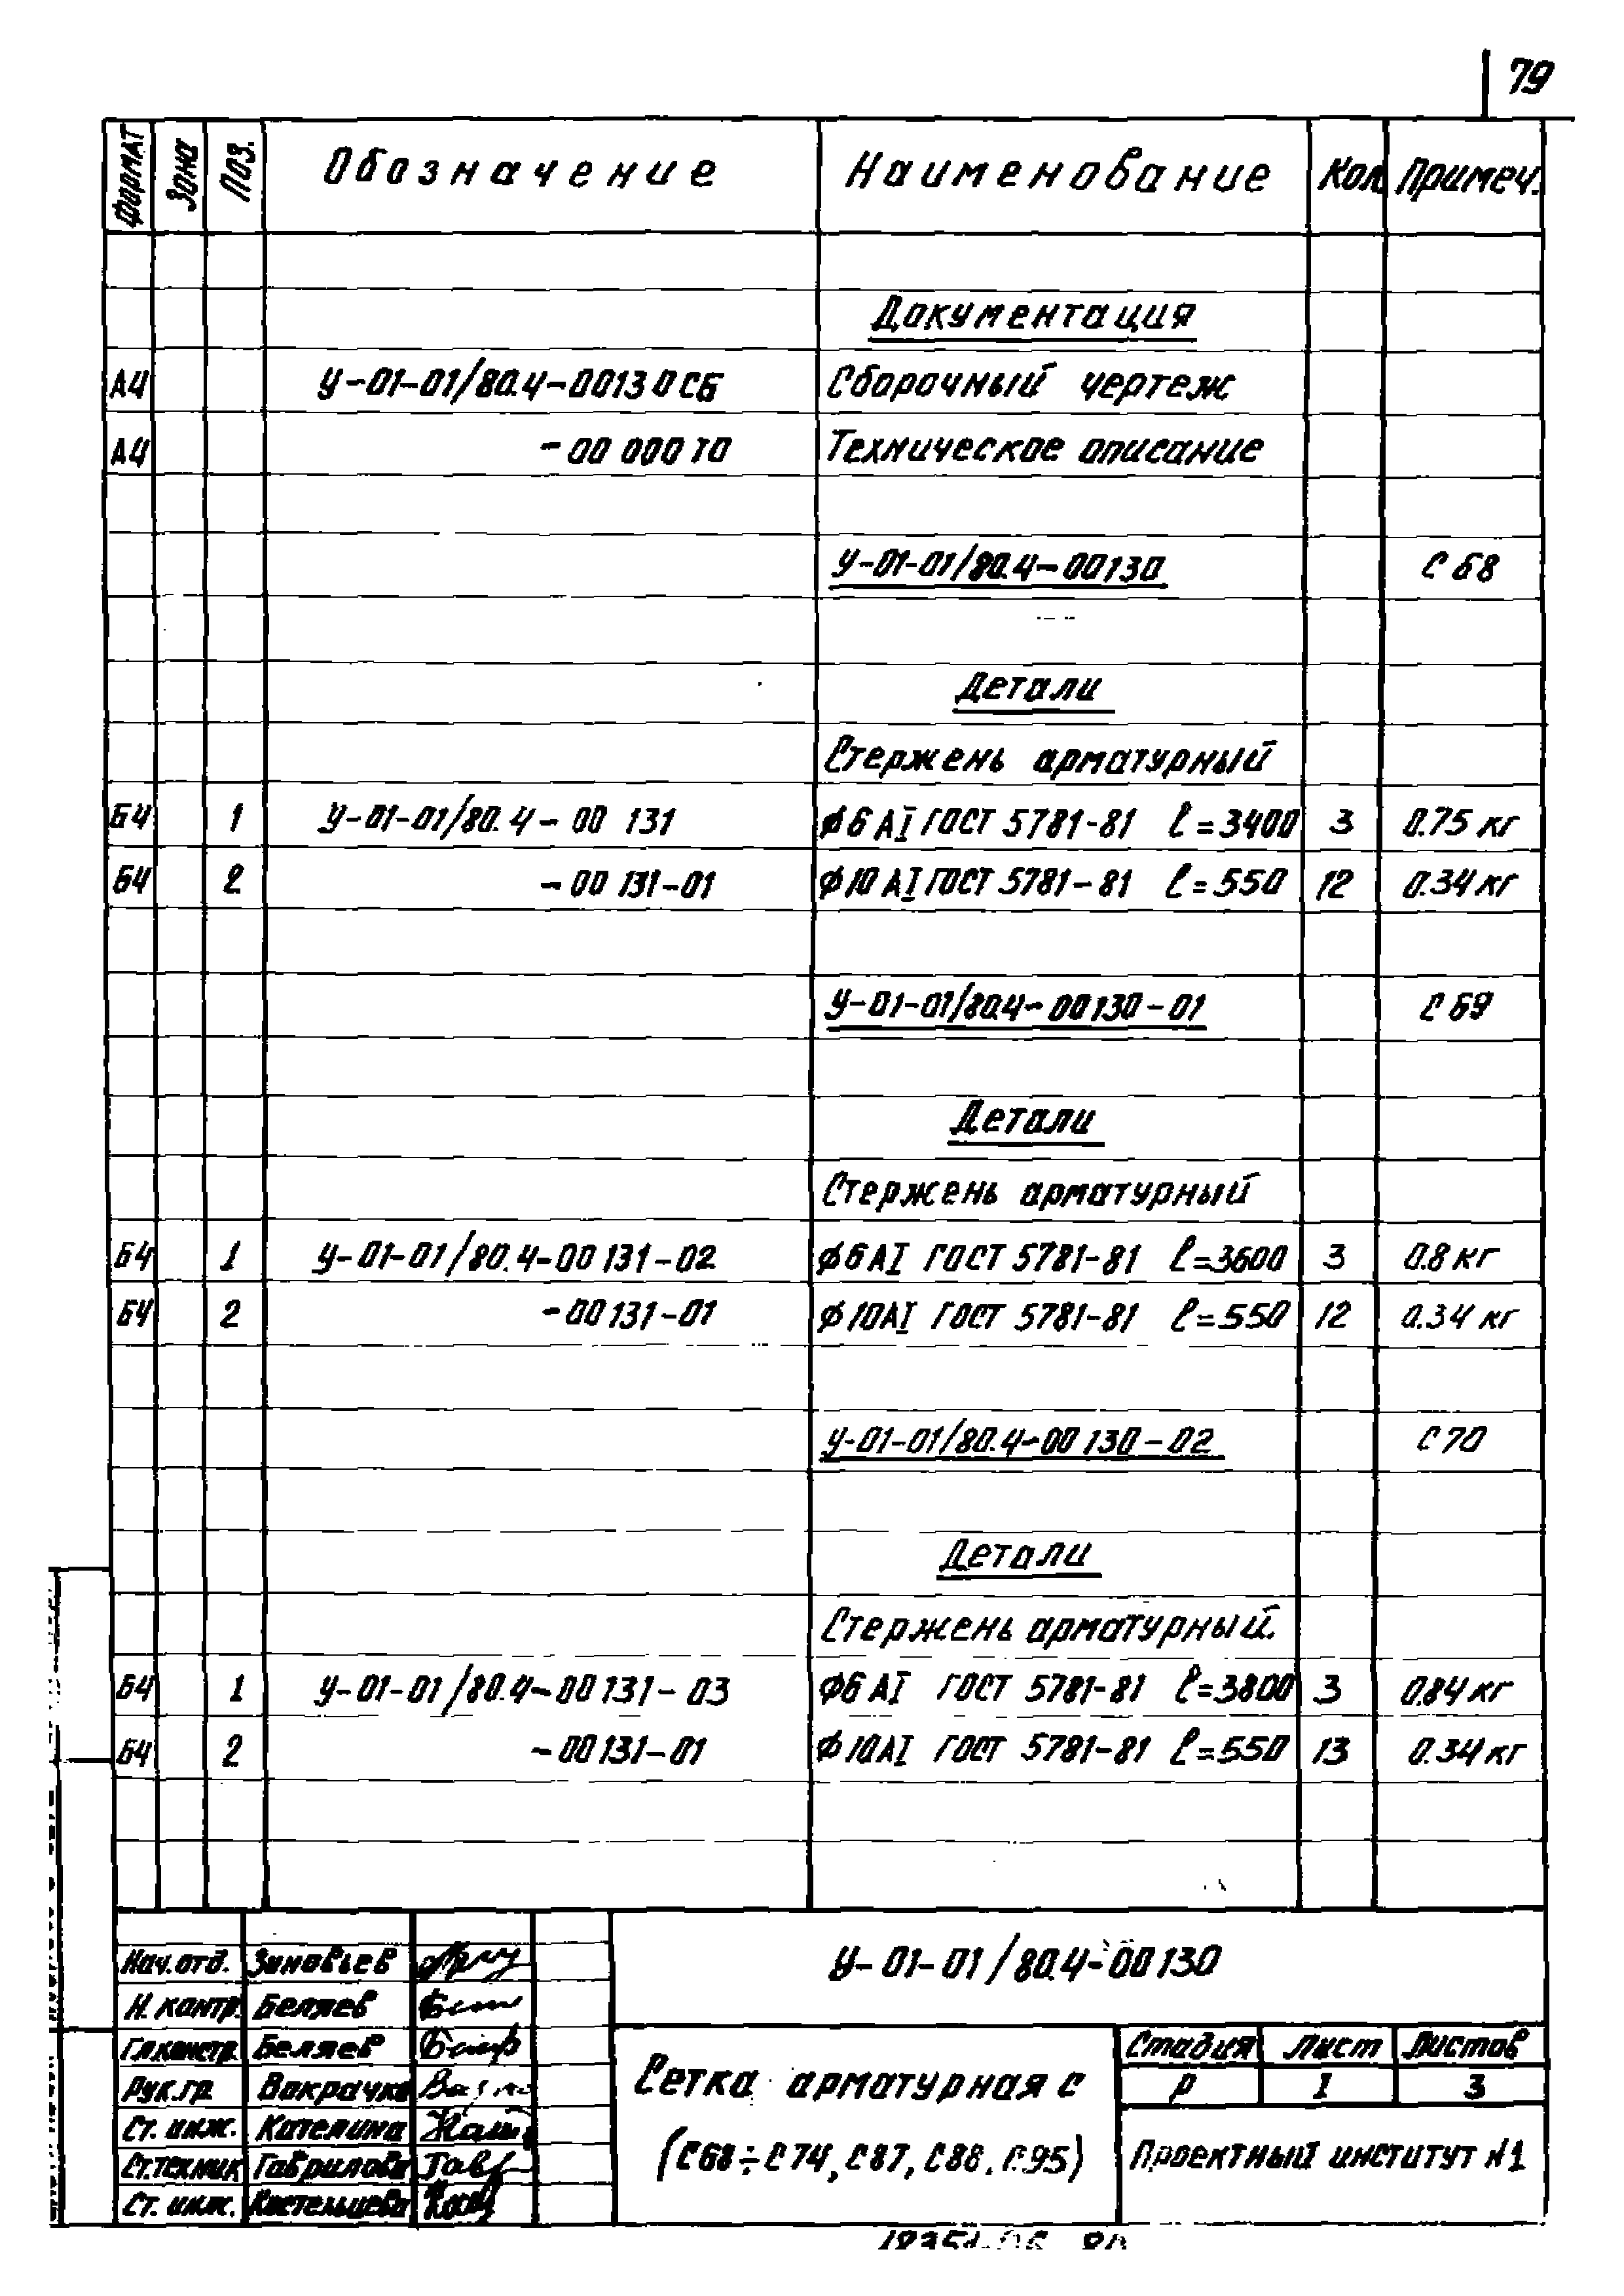 79
Формат Зона Поз. Обозначение Наименование Кол. Примеч.
Документация
А4 У-01-01/80.4-00130СБ Сборочный чертеж
А4 -00 000ТО Техническое описание
У-01-01/80.4-00130 С68
Детали
Стержень арматурный
Б4 1 У-01-01/80.4-00 131 ф6АI ГОСТ 5781-81 ℓ=3400 3 0.75 кг
Б4 2 -00 131-01 ф10АI ГОСТ 5781-81 ℓ=550 12 0.34 кг
У-01-01/80.4-00130-01 С69
Детали
Стержень арматурный
Б4 1 У-01-01/80.4-00131-02 ф6АI ГОСТ 5781-81 ℓ=3600 3 0.8 кг
Б4 2 -00131-01 ф10АI ГОСТ 5781-81 ℓ=550 12 0.34 кг
У-01-01/80.4-00130-02 С70
Детали
Стержень арматурный.
Б4 1 У-01-01/80.4-00131-03 ф6АI ГОСТ 5781-81 ℓ=3800 3 0.84 кг
Б4 2 -00131-01 ф10АI ГОСТ 5781-81 ℓ=550 13 0.34 кг
Нач.отд. Зиновьев
Н.контр. Беляев
Гл.констр. Беляев
Рук.гр. Вокрачко
Ст. инж. Кателина
Ст.техник Гаврилова
Ст. инж.
У-01-01/80.4-00130
Сетка арматурная С
(С68÷С74, С87, С88, С95)
Стадия Лист Листов
Р 1 3
Проектный институт №1